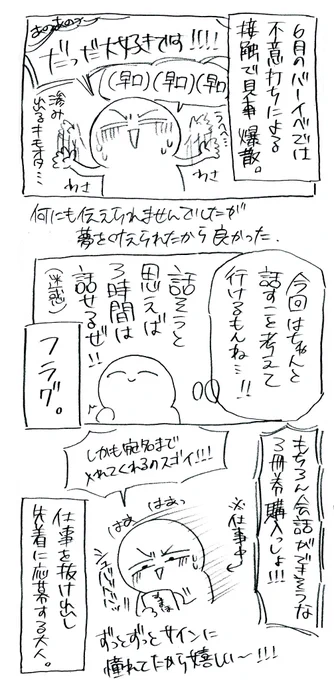 6月のバーイベでは
不意打ちによる
接触で見事爆散。
あのあのっ
だっだ大好きです!!!!
(早口)(早口)(早口)
うへへ…
滲み
出るキモオタ…
わさ
わさ
何にも伝えられませんでしたが
夢は叶えられたから良かった.
今回はちゃんと
話すことを考えて
行けるもんね…!!
話そうと
思えば
3時間は
話せるぜ!!
(迷惑)
フラグ。
もちろん会話ができそうな
3冊券購入っしょ!!!
しかも宛名まで
入れてくれるのスゴイ!!!
※仕事中
はぁっ
はぁっ
仕事を抜け出し
先着に応募する大人。
ずっとずっとサインに
憧れてたから嬉しい〜!!!